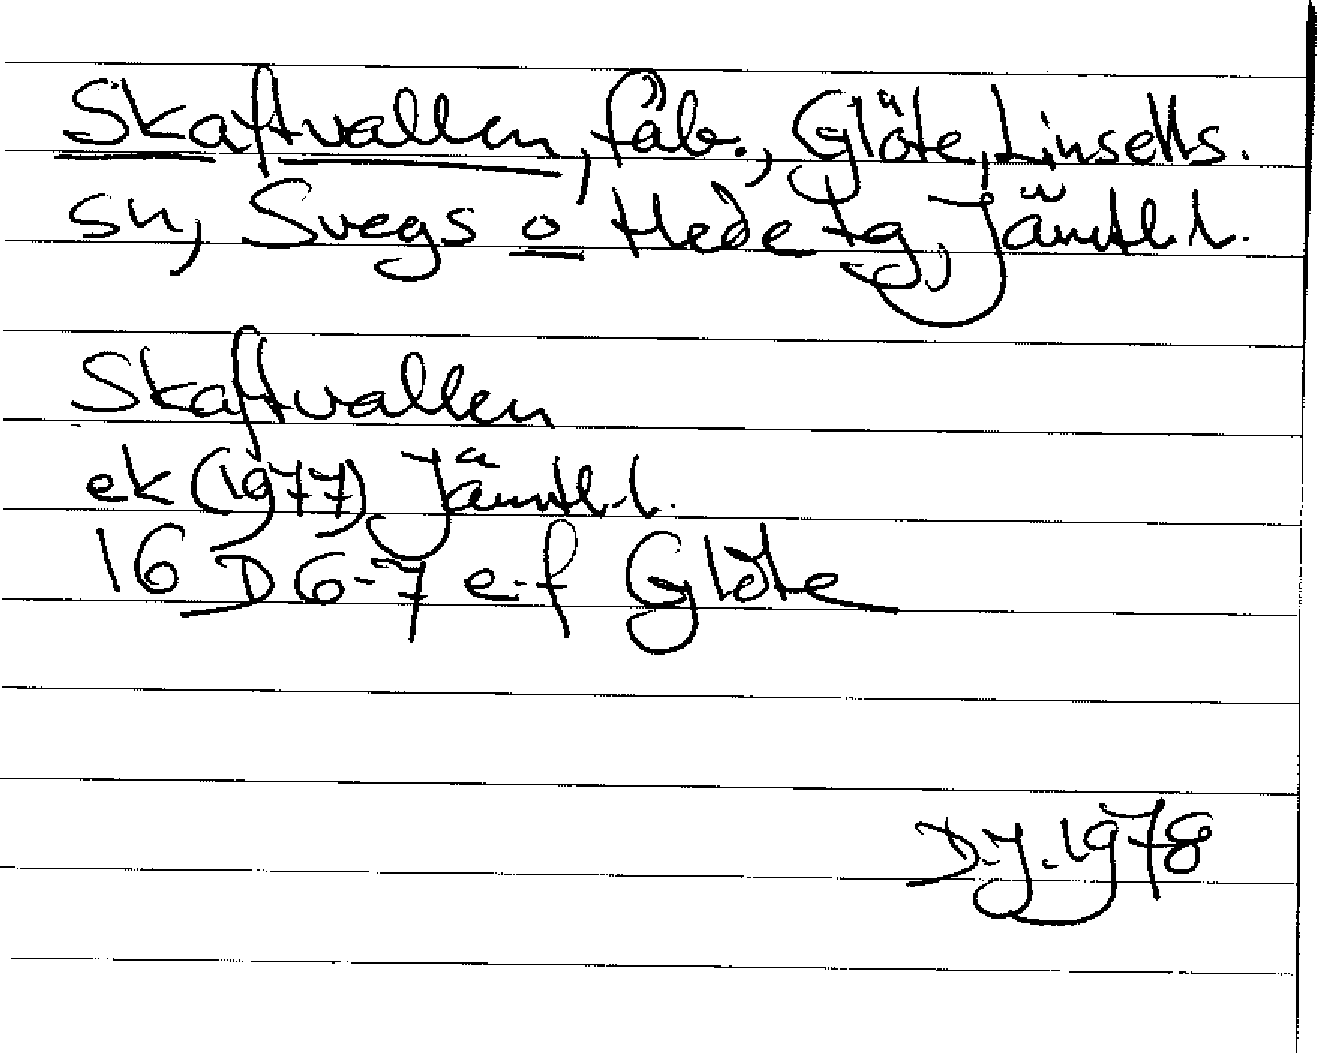 Skaftvallen, fäb., Glöte, Linsells.
sn, Svegs o Hede tg, Jämtl. l.
Skaftvallen
ek (1977) Jämtl. l.
16 D 6-7 e-f Glöte
D.J. 1978